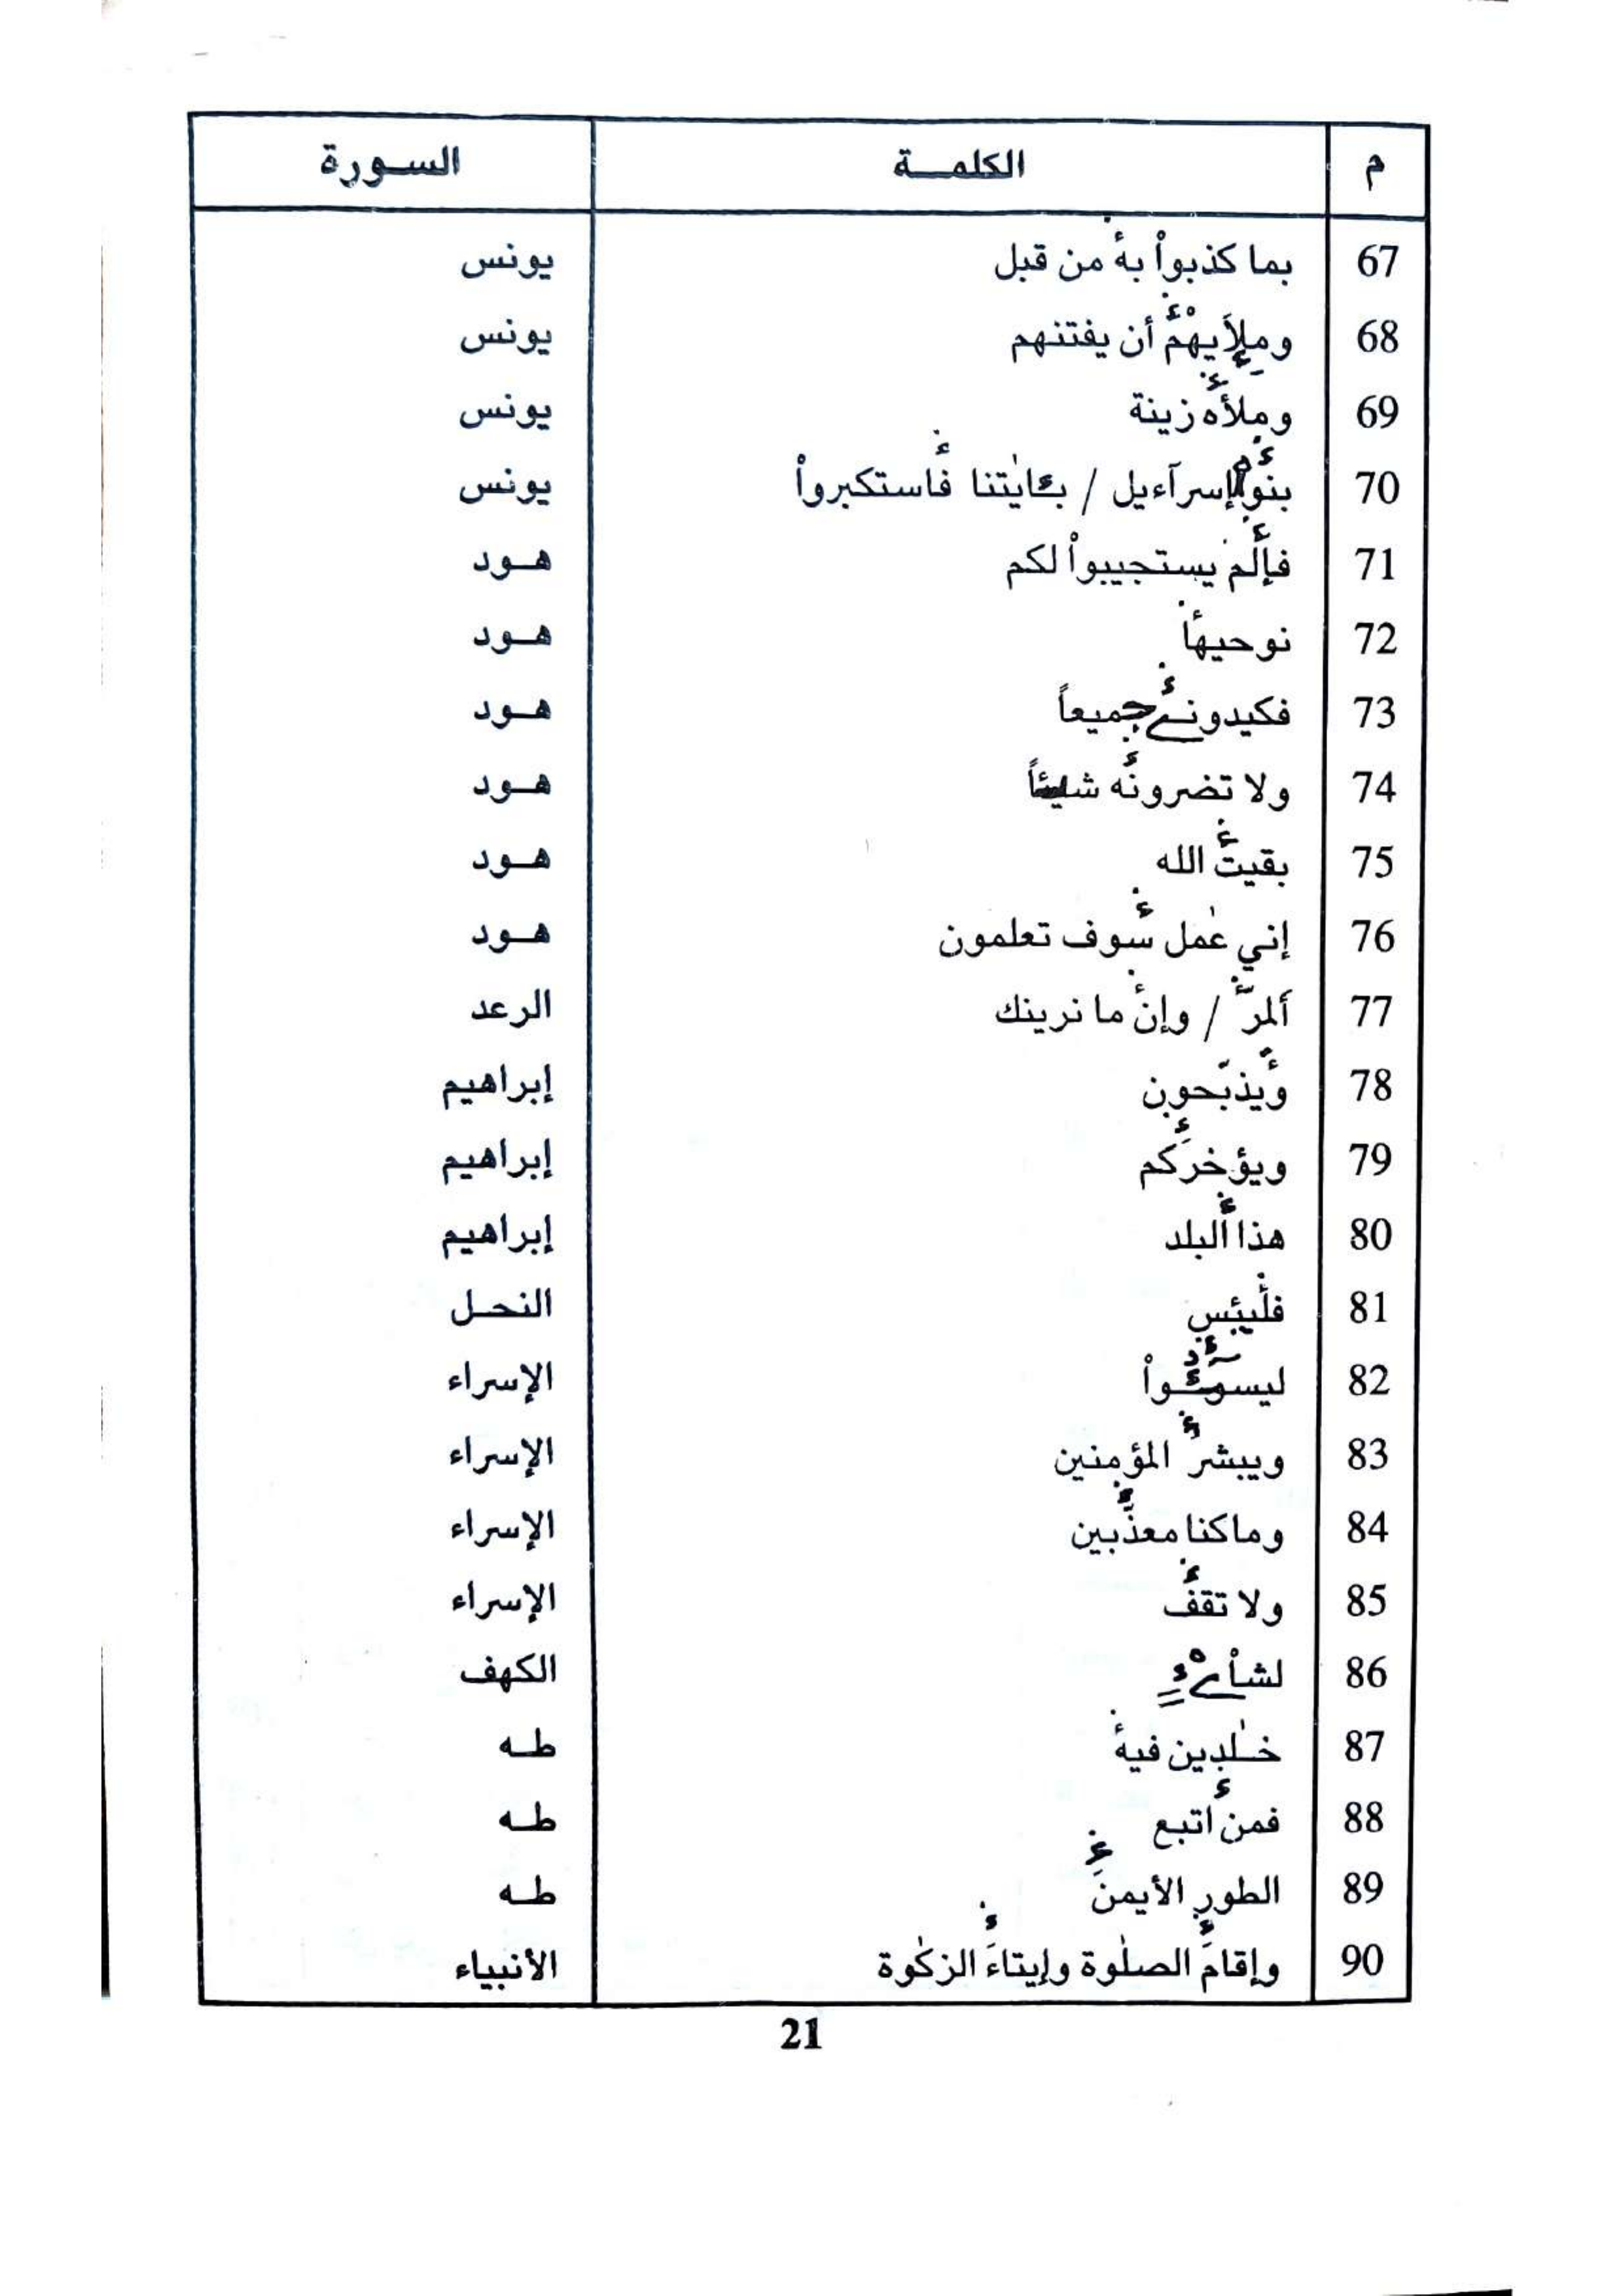 م الكلمـــة الســورة
67 بما كذبواْ به من قبل يونس
68 وملإَيهمْ أن يفتنهم يونس
69 وملأه زينة يونس
70 بنواْ إسرآءيل / بـٔايٰتنا فاستكبرواْ يونس
71 فإلم يستجيبواْ لكم هــود
72 نوحيها هــود
73 فكيدونے جميعاً هــود
74 ولا تضرونه شيئاً هــود
75 بقيت الله هــود
76 إني عٰمل سوف تعلمون هــود
77 ألمرّ / وإن ما نرينك الرعد
78 ويذبّحون إبراهيم
79 ويؤخركم إبراهيم
80 هذا البلد إبراهيم
81 فلبئس النحــل
82 ليسـۥـٔواْ الإسراء
83 ويبشر المؤمنين الإسراء
84 وما كنا معذّبين الإسراء
85 ولا تقف الإسراء
86 لشاْےْءٍ الكهف
87 خـٰلدين فيه طـه
88 فمن اتبع طـه
89 الطور الأيمن طـه
90 وإقامَ الصلٰوة وإيتاءَ الزكٰوة الأنبياء
21